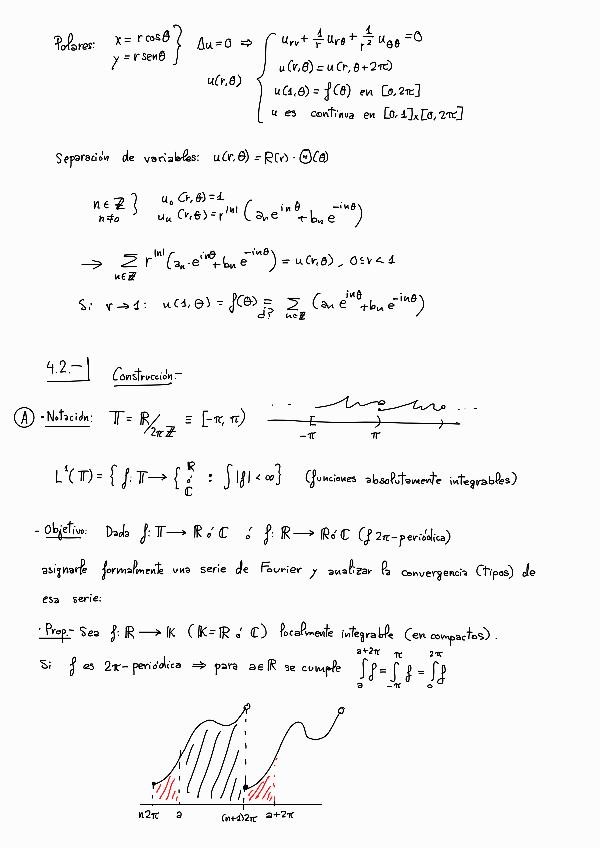 Polares: x = r cosθ } Δu=0 ⇒ { u_rr + 1/r u_rθ + 1/r² u_θθ = 0
y = r senθ u(r,θ) u(r,θ) = u(r,θ+2π)
u(1,θ) = f(θ) en [0,2π]
u es continua en [0,1]x[0,2π]
Separación de variables: u(r,θ) = R(r)·Θ(θ)
n∈ℤ } u₀(r,θ)=1
n≠0 uₙ(r,θ)=r^|n| (aₙe^{inθ}+bₙe^{-inθ})
→ Σ_{n∈ℤ} r^|n| (aₙ·e^{inθ}+bₙe^{-inθ}) = u(r,θ), 0≤r<1
Si r→1: u(1,θ) = f(θ) =_{d?} Σ_{n∈ℤ} (aₙe^{inθ}+bₙe^{-inθ})
4.2.-| Construcción.-
Ⓐ ·Notación: 𝕋 = ℝ/2πℤ ≡ [-π,π) ... ...
-π π
L¹(𝕋) = { f: 𝕋 → { ℝ ó ℂ : ∫|f| < ∞} (funciones absolutamente integrables)
- Objetivo: Dada f: 𝕋 → ℝ ó ℂ ó f: ℝ → ℝ ó ℂ (f 2π-periódica)
asignarle formalmente una serie de Fourier y analizar la convergencia (tipos) de
esa serie:
·Prop.- Sea f: ℝ → 𝕂 (𝕂=ℝ ó ℂ) localmente integrable (en compactos).
Si f es 2π-periódica ⇒ para a∈ℝ se cumple ∫_a^{a+2π} f = ∫_{-π}^{π} f = ∫_0^{2π} f
n2π a (n+1)2π a+2π